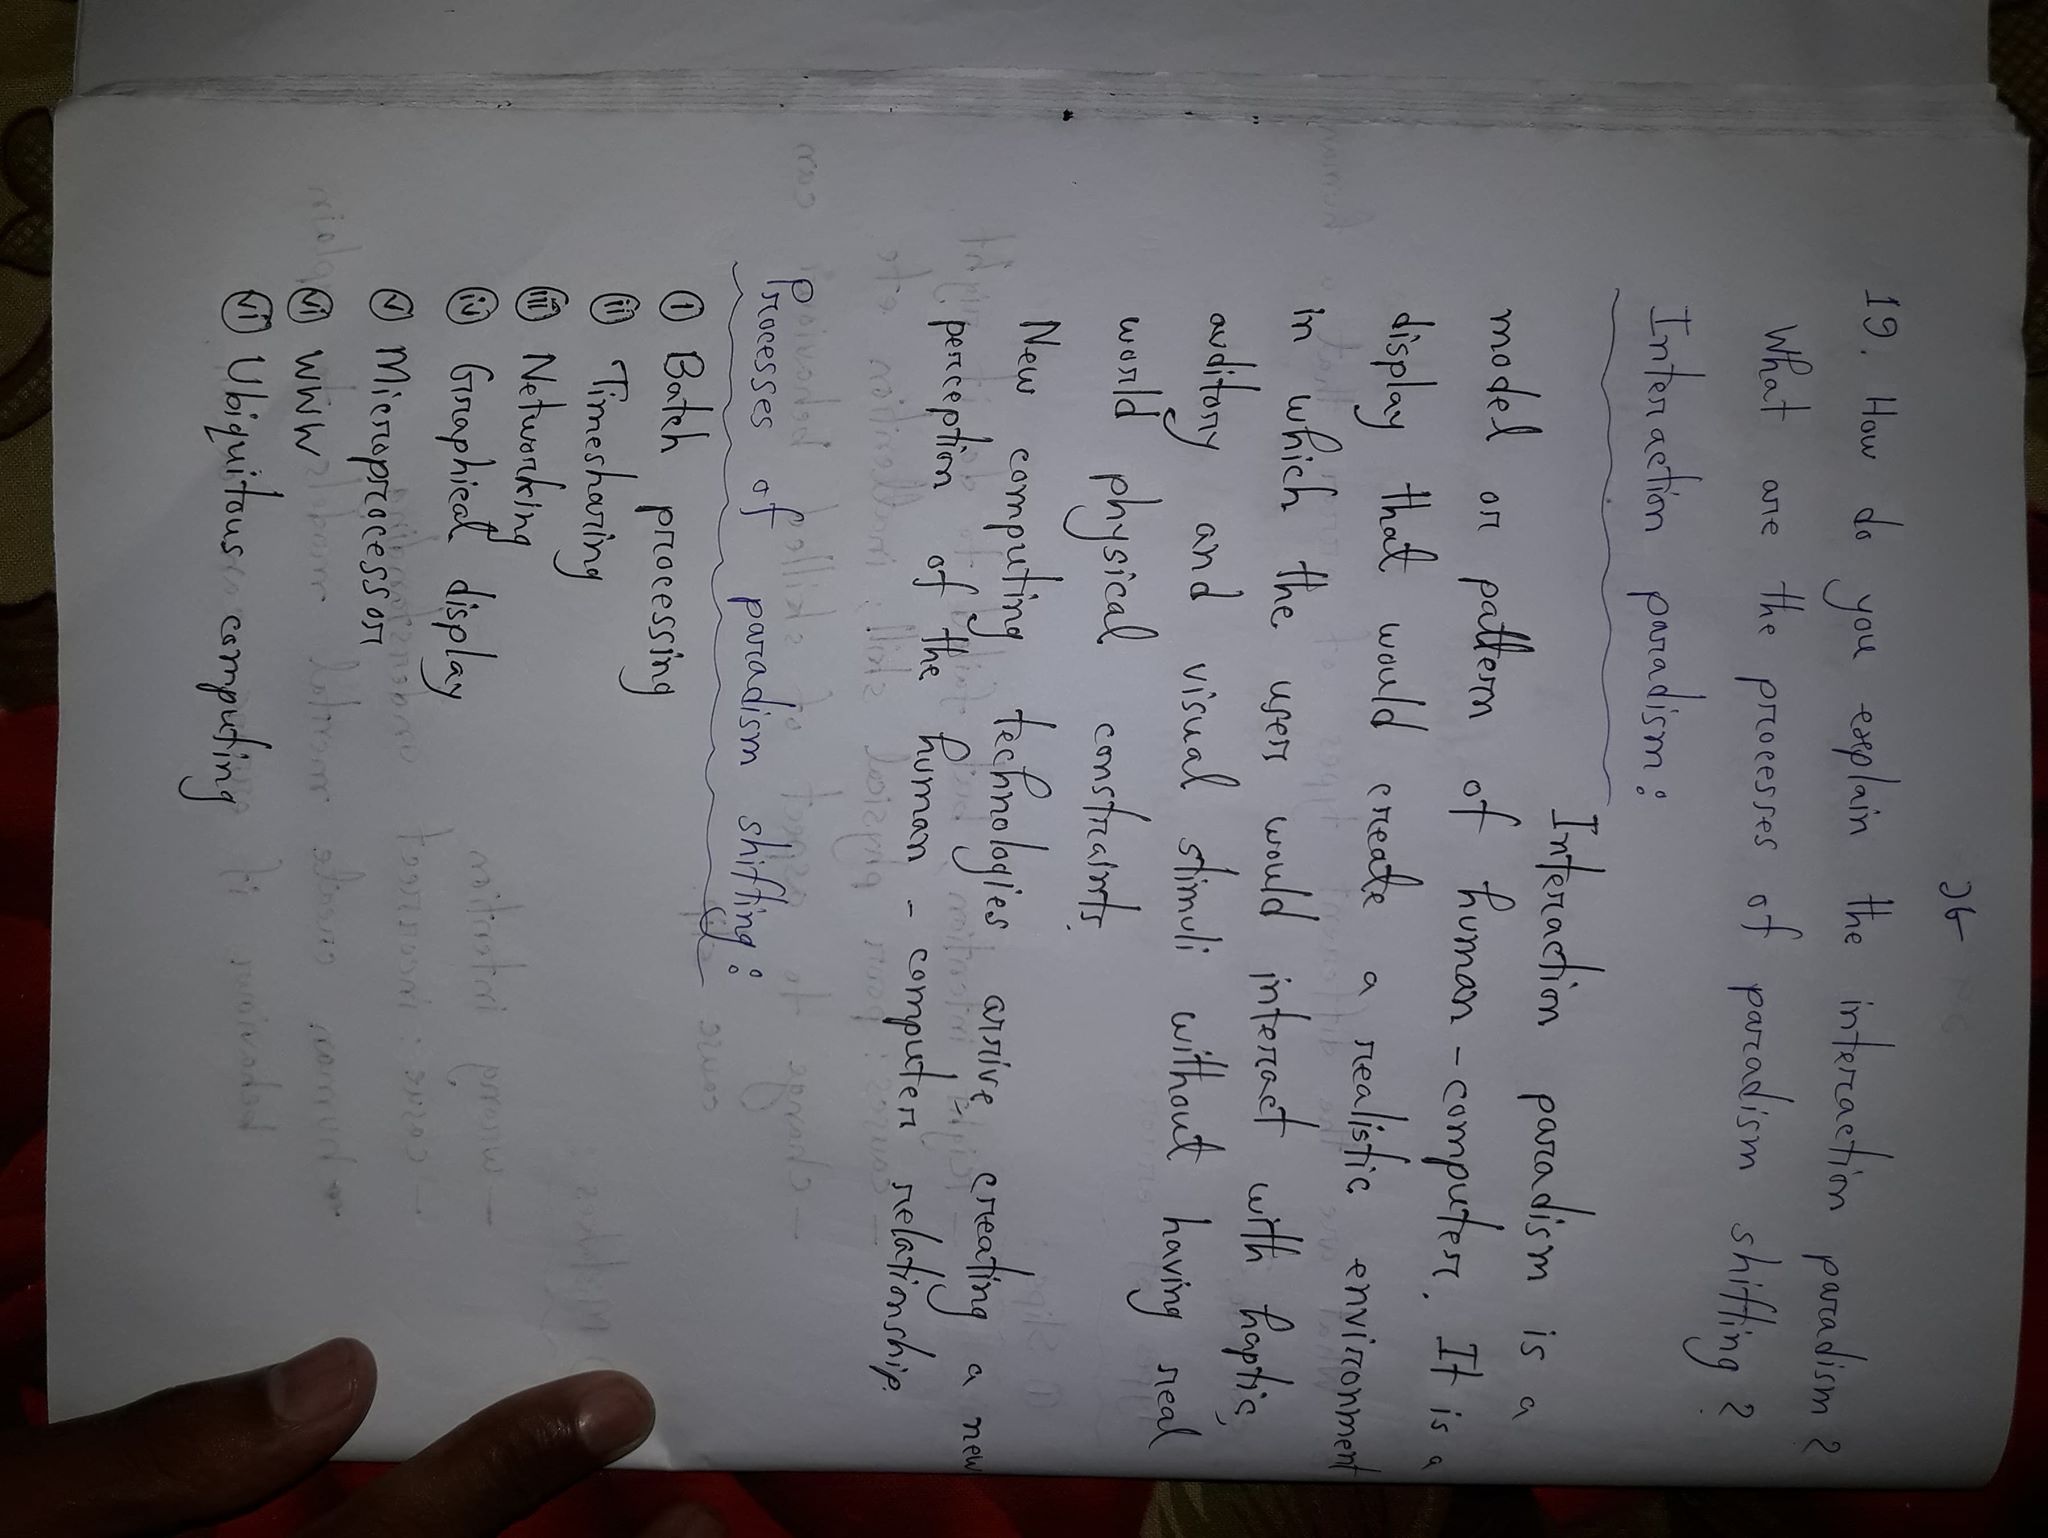 ২৮
19. How do you explain the interaction paradism?
What are the processes of paradism shifting?
Interaction paradism:
Interaction paradism is a
model or pattern of human-computer. It is a
display that would create a realistic environment
in which the user would interact with haptic,
auditory and visual stimuli without having real
world physical constraints.
New computing technologies arrive, creating a new
perception of the human-computer relationship.
Processes of paradism shifting:
(i) Batch processing
(ii) Timesharing
(iii) Networking
(iv) Graphical display
(v) Microprocessor
(vi) WWW
(vi) Ubiquitous computing